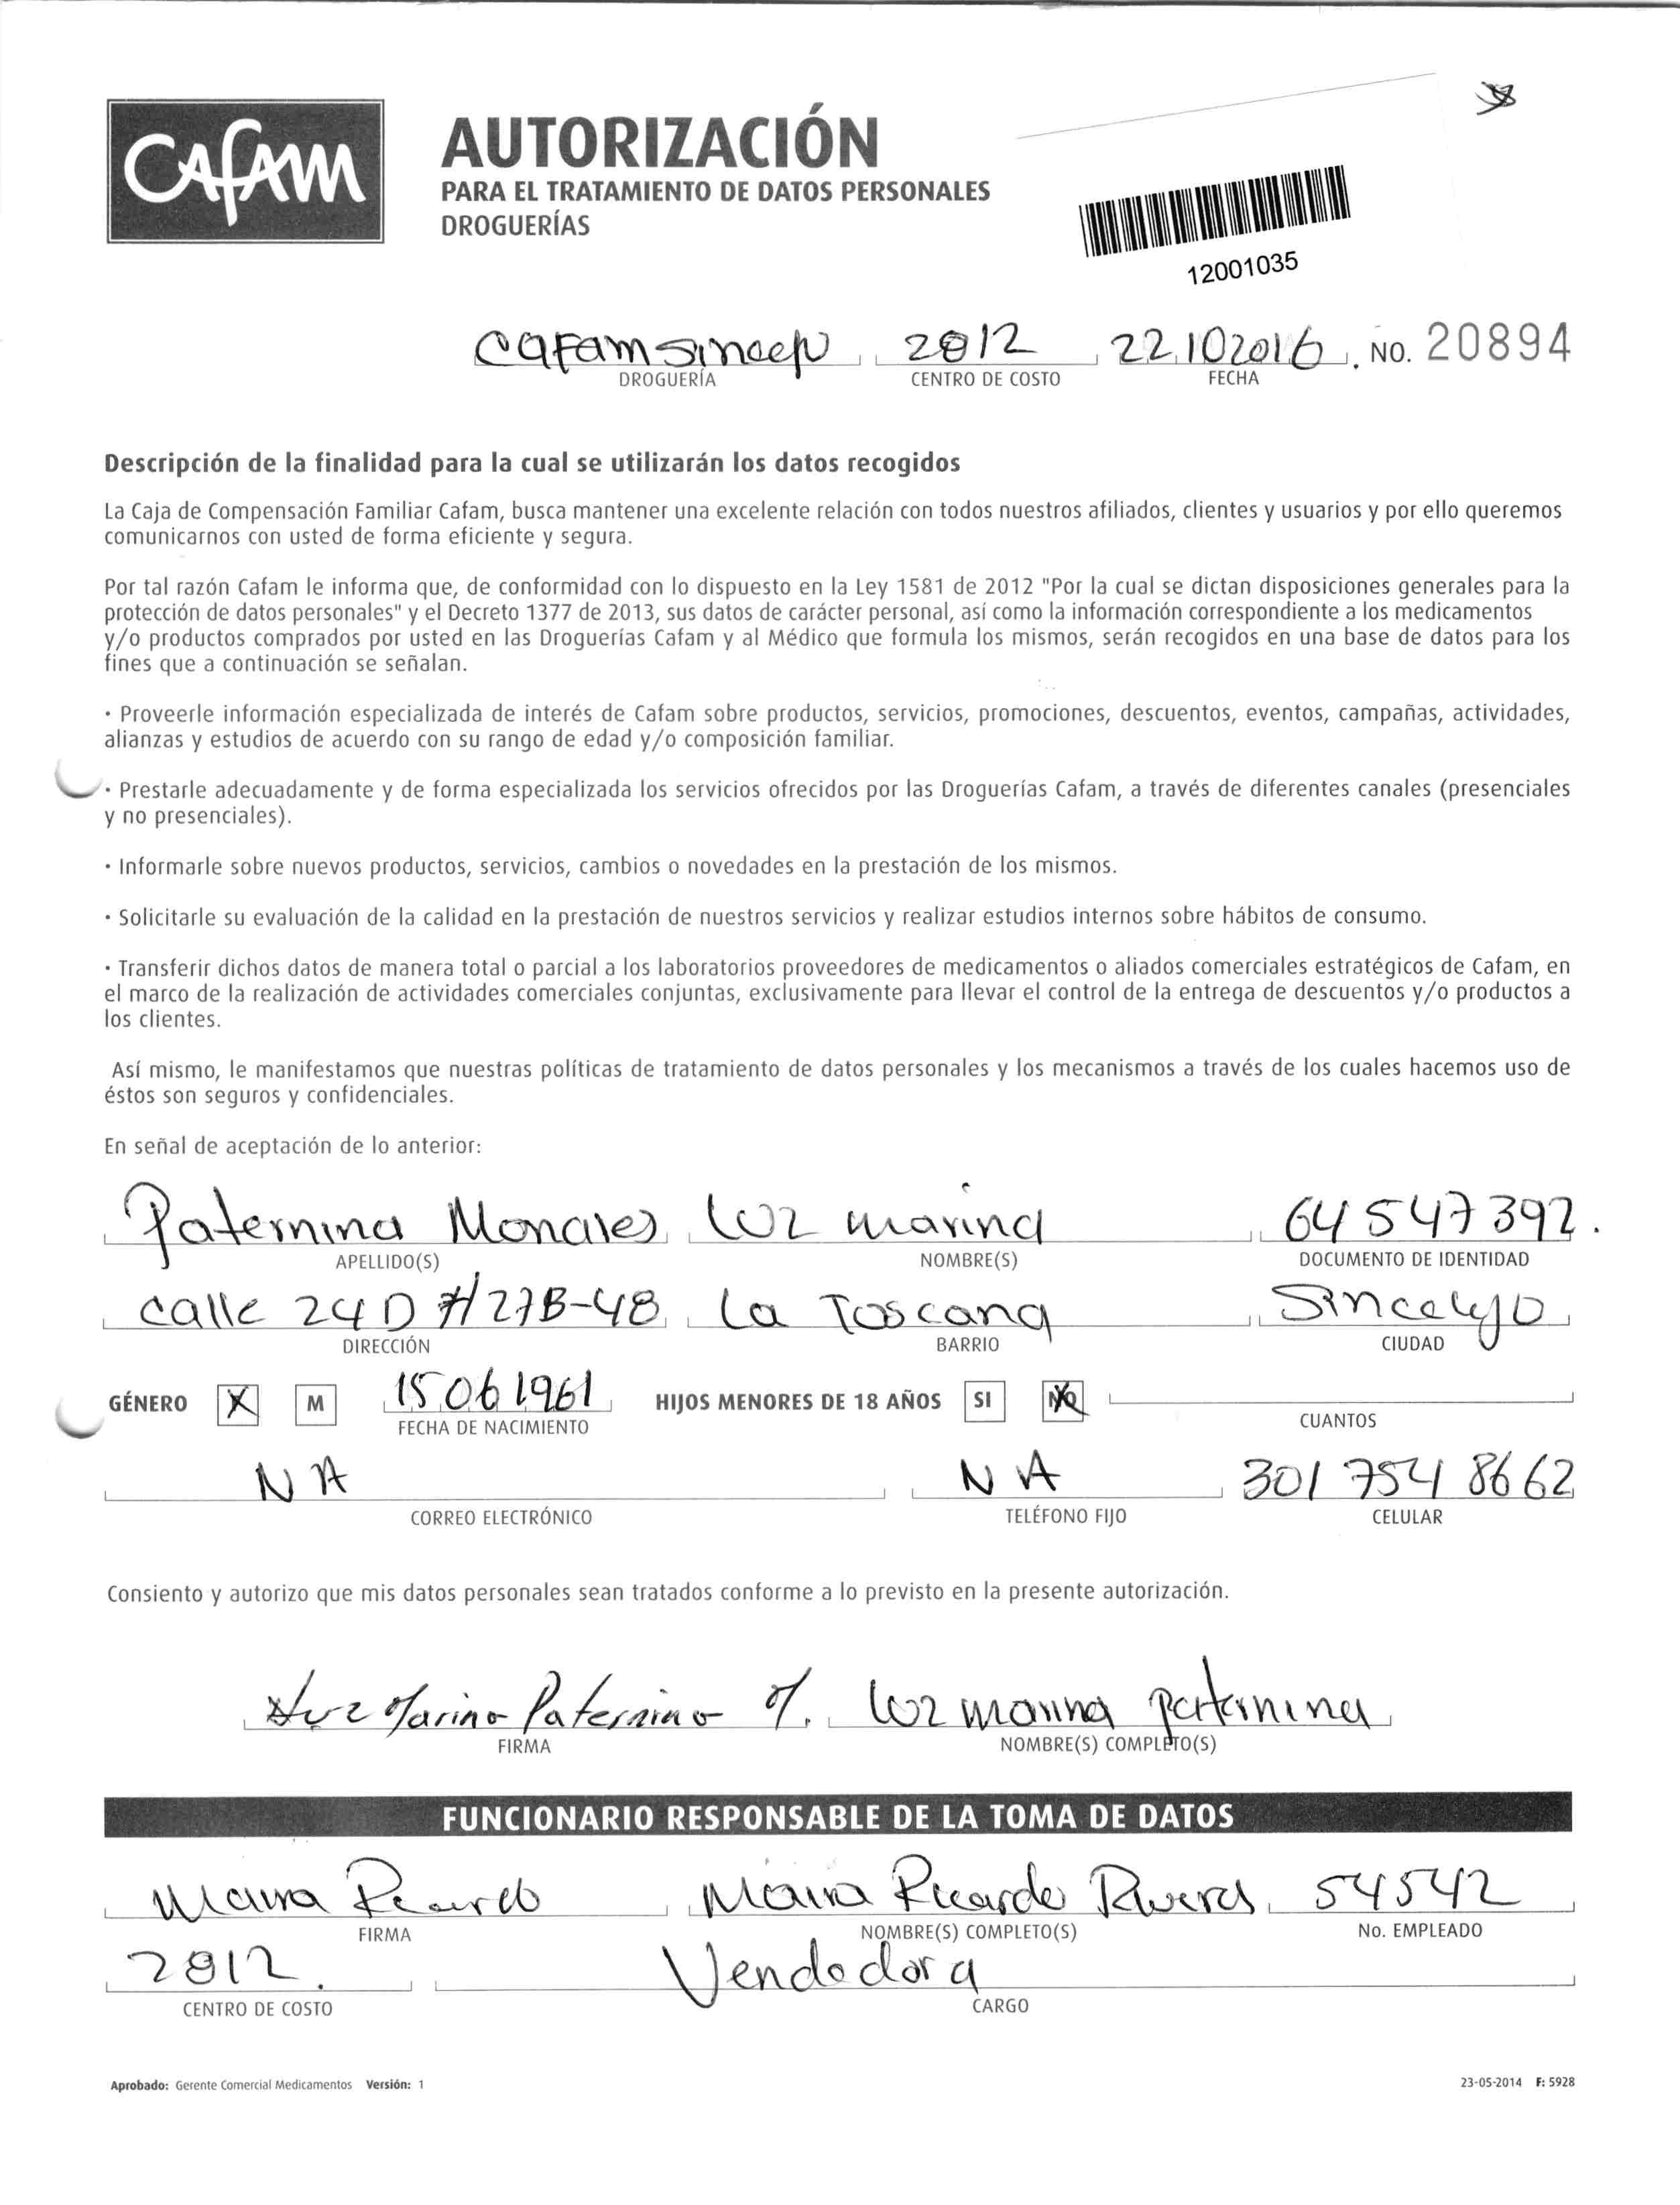 CAFAM
AUTORIZACIÓN
PARA EL TRATAMIENTO DE DATOS PERSONALES
DROGUERÍAS
12001035
2812 22 10 2016 NO. 20894
DROGUERÍA CENTRO DE COSTO FECHA
Descripción de la finalidad para la cual se utilizarán los datos recogidos
La Caja de Compensación Familiar Cafam, busca mantener una excelente relación con todos nuestros afiliados, clientes y usuarios y por ello queremos
comunicarnos con usted de forma eficiente y segura.
Por tal razón Cafam le informa que, de conformidad con lo dispuesto en la Ley 1581 de 2012 "Por la cual se dictan disposiciones generales para la
protección de datos personales" y el Decreto 1377 de 2013, sus datos de carácter personal, así como la información correspondiente a los medicamentos
y/o productos comprados por usted en las Droguerías Cafam y al Médico que formula los mismos, serán recogidos en una base de datos para los
fines que a continuación se señalan.
· Proveerle información especializada de interés de Cafam sobre productos, servicios, promociones, descuentos, eventos, campañas, actividades,
alianzas y estudios de acuerdo con su rango de edad y/o composición familiar.
· Prestarle adecuadamente y de forma especializada los servicios ofrecidos por las Droguerías Cafam, a través de diferentes canales (presenciales
y no presenciales).
· Informarle sobre nuevos productos, servicios, cambios o novedades en la prestación de los mismos.
· Solicitarle su evaluación de la calidad en la prestación de nuestros servicios y realizar estudios internos sobre hábitos de consumo.
· Transferir dichos datos de manera total o parcial a los laboratorios proveedores de medicamentos o aliados comerciales estratégicos de Cafam, en
el marco de la realización de actividades comerciales conjuntas, exclusivamente para llevar el control de la entrega de descuentos y/o productos a
los clientes.
Así mismo, le manifestamos que nuestras políticas de tratamiento de datos personales y los mecanismos a través de los cuales hacemos uso de
éstos son seguros y confidenciales.
En señal de aceptación de lo anterior:
Paternina Luz marina 64 547 392.
APELLIDO(S) NOMBRE(S) DOCUMENTO DE IDENTIDAD
calle 24 D # 27B-48 La Toscana Sincelejo
DIRECCIÓN BARRIO CIUDAD
GÉNERO X M 15 06 1961 HIJOS MENORES DE 18 AÑOS SI NO
FECHA DE NACIMIENTO CUANTOS
N A N A 301 754 8662
CORREO ELECTRÓNICO TELÉFONO FIJO CELULAR
Consiento y autorizo que mis datos personales sean tratados conforme a lo previsto en la presente autorización.
Luz Marina Paternina M. luz marina paternina
FIRMA NOMBRE(S) COMPLETO(S)
FUNCIONARIO RESPONSABLE DE LA TOMA DE DATOS
Maira Ricardo Maira Ricardo Rivera 54542
FIRMA NOMBRE(S) COMPLETO(S) No. EMPLEADO
2812. Vendedora
CENTRO DE COSTO CARGO
Aprobado: Gerente Comercial Medicamentos Versión: 1 23-05-2014 F: 5928